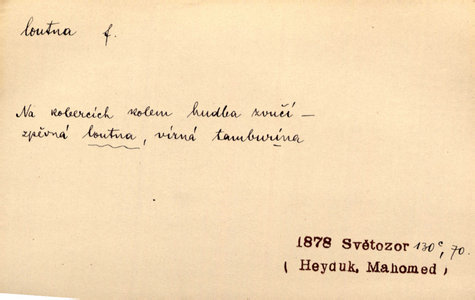 loutna f.
Na kobercích kolem hudba zvučí —
zpěvná loutna, vírná tamburína
1878 Světozor 130c, 70.
( Heyduk, Mahomed )